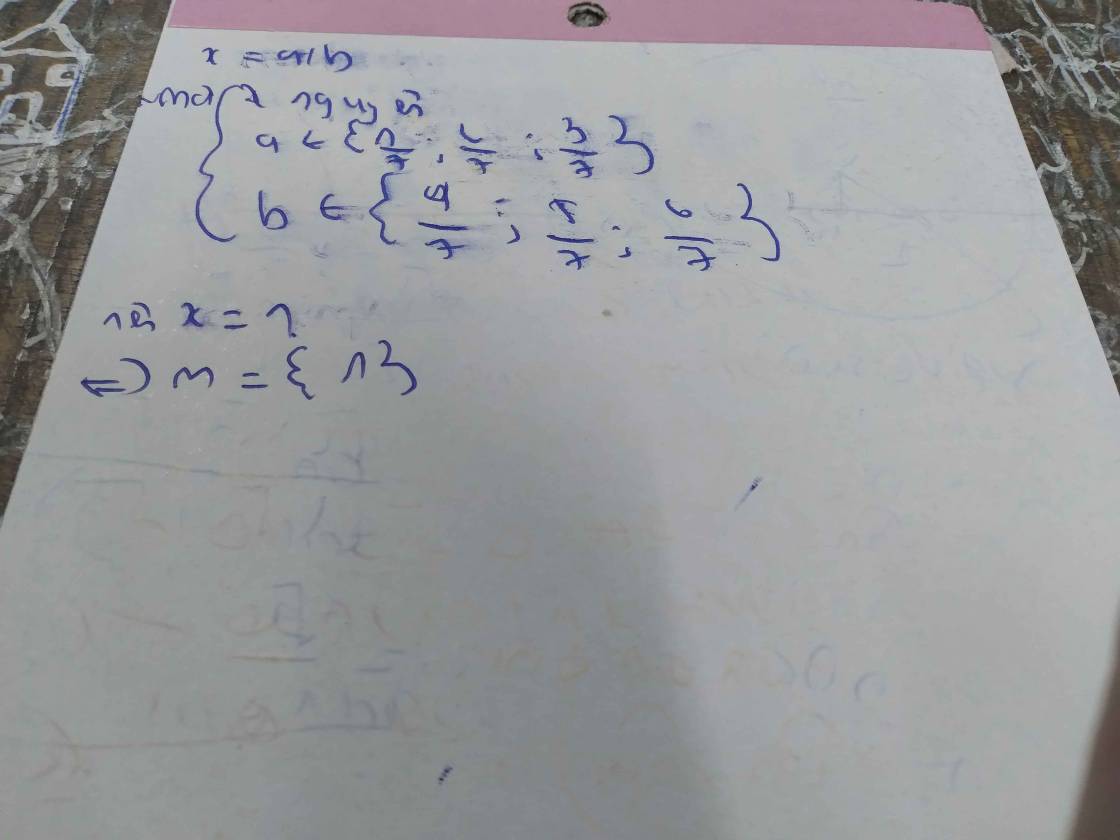 x = a+b
mà { x nguyên
a ∈ { 1/7 ; 2/7 ; 3/7 }
b ∈ { 4/7 ; 5/7 ; 6/7 }
nên x = 1
⇔ M = { 1 }